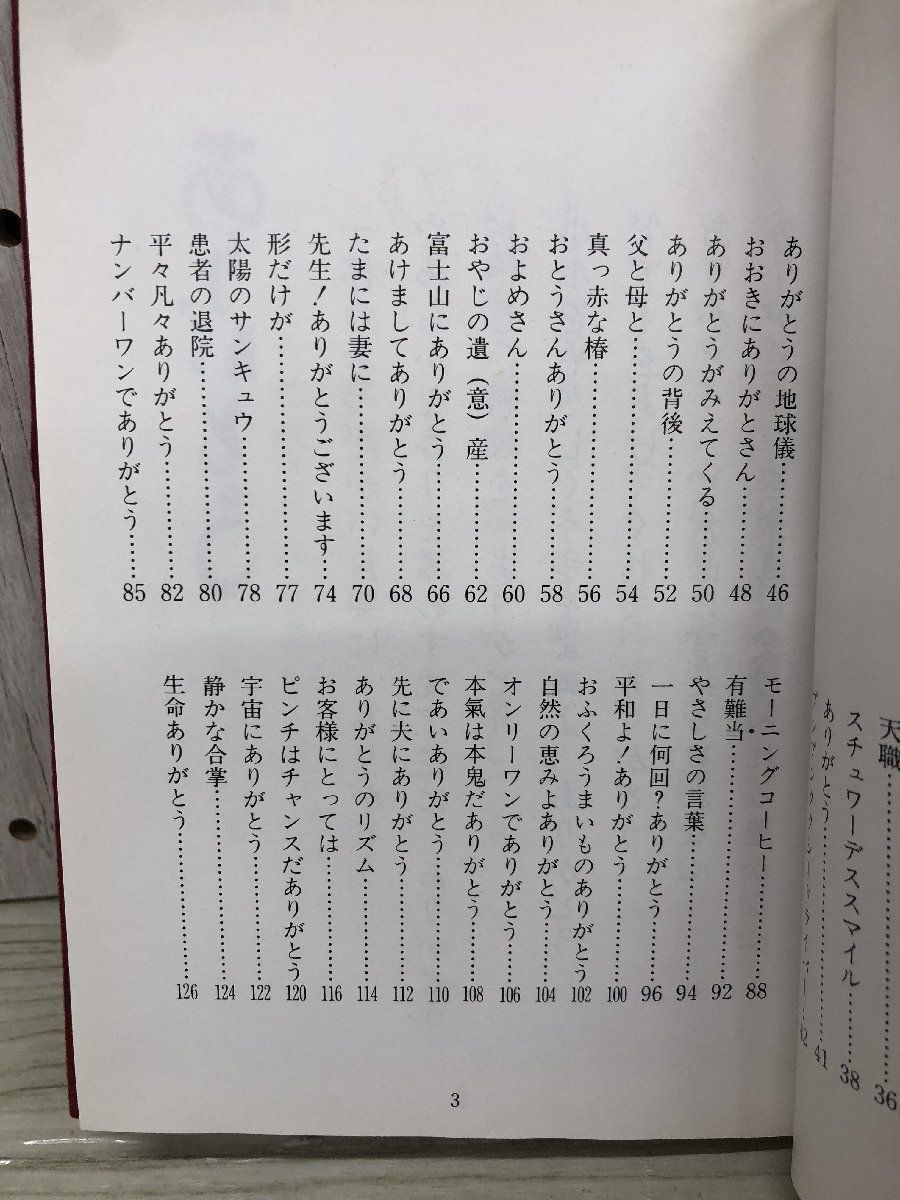 天職……………………36
スチュワーデススマイル………38
ありがとう……………41
ありがとうの地球儀………46
おおきにありがとさん………48
ありがとうがみえてくる………50
ありがとうの背後………52
父と母と………54
真っ赤な椿………56
おとうさんありがとう………58
およめさん………60
おやじの遺(意)産………62
富士山にありがとう………66
あけましてありがとう………68
たまには妻に………70
先生!ありがとうございます………74
形だけが………77
太陽のサンキュウ………78
患者の退院………80
平々凡々ありがとう………82
ナンバーワンでありがとう………85
モーニングコーヒー………88
有難当………92
やさしさの言葉………94
一日に何回?ありがとう………96
平和よ!ありがとう………100
おふくろうまいものありがとう 102
自然の恵みよありがとう………104
オンリーワンでありがとう………106
本氣は本鬼だありがとう………108
であいありがとう………110
先に夫にありがとう………112
ありがとうのリズム………114
お客様にとっては………116
ピンチはチャンスだありがとう 120
宇宙にありがとう………122
静かな合掌………124
生命ありがとう………126
3